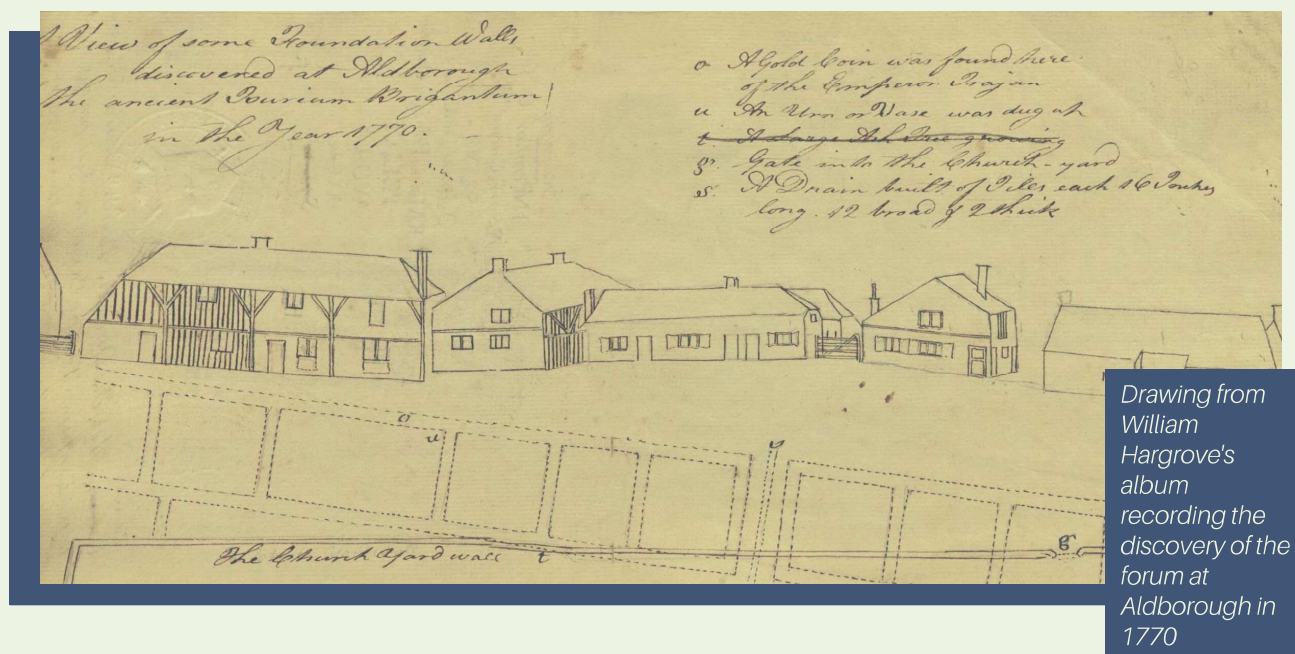 A View of some Foundation Walls
discovered at Aldborough
the ancient Isurium Brigantum
in the Year 1770.
o A Gold Coin was found here
of the Emperor Trajan
u An Urn or Vase was dug up
t. A large Ash Tree growing
g. Gate into the Church-yard
s. A Drain built of Tiles each 16 Inches
long. 12 broad & 2 thick
o
u
s
The Church Yard wall t
g
Drawing from
William
Hargrove's
album
recording the
discovery of the
forum at
Aldborough in
1770